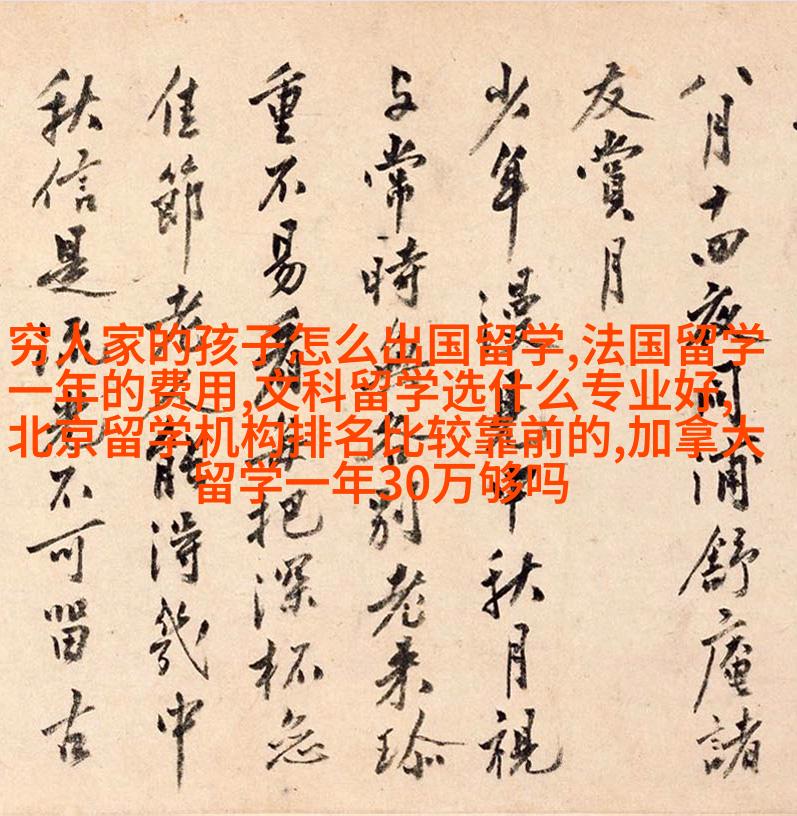 穷人家的孩子怎么出国留学,法国留学
一年的费用,文科留学选什么专业好,
北京留学机构排名比较靠前的,加拿大
留学一年30万够吗
八月十四夜同浦舒庵諸
友賞月
少年漫見中秋月視
与常時無各別老来珍
重不易看每把深杯念
佳節老人能得幾中
秋信是流光不可留古